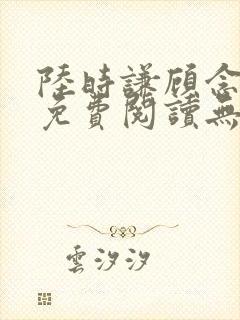 陸時謙顧念
免費閱讀無
雲汐汐